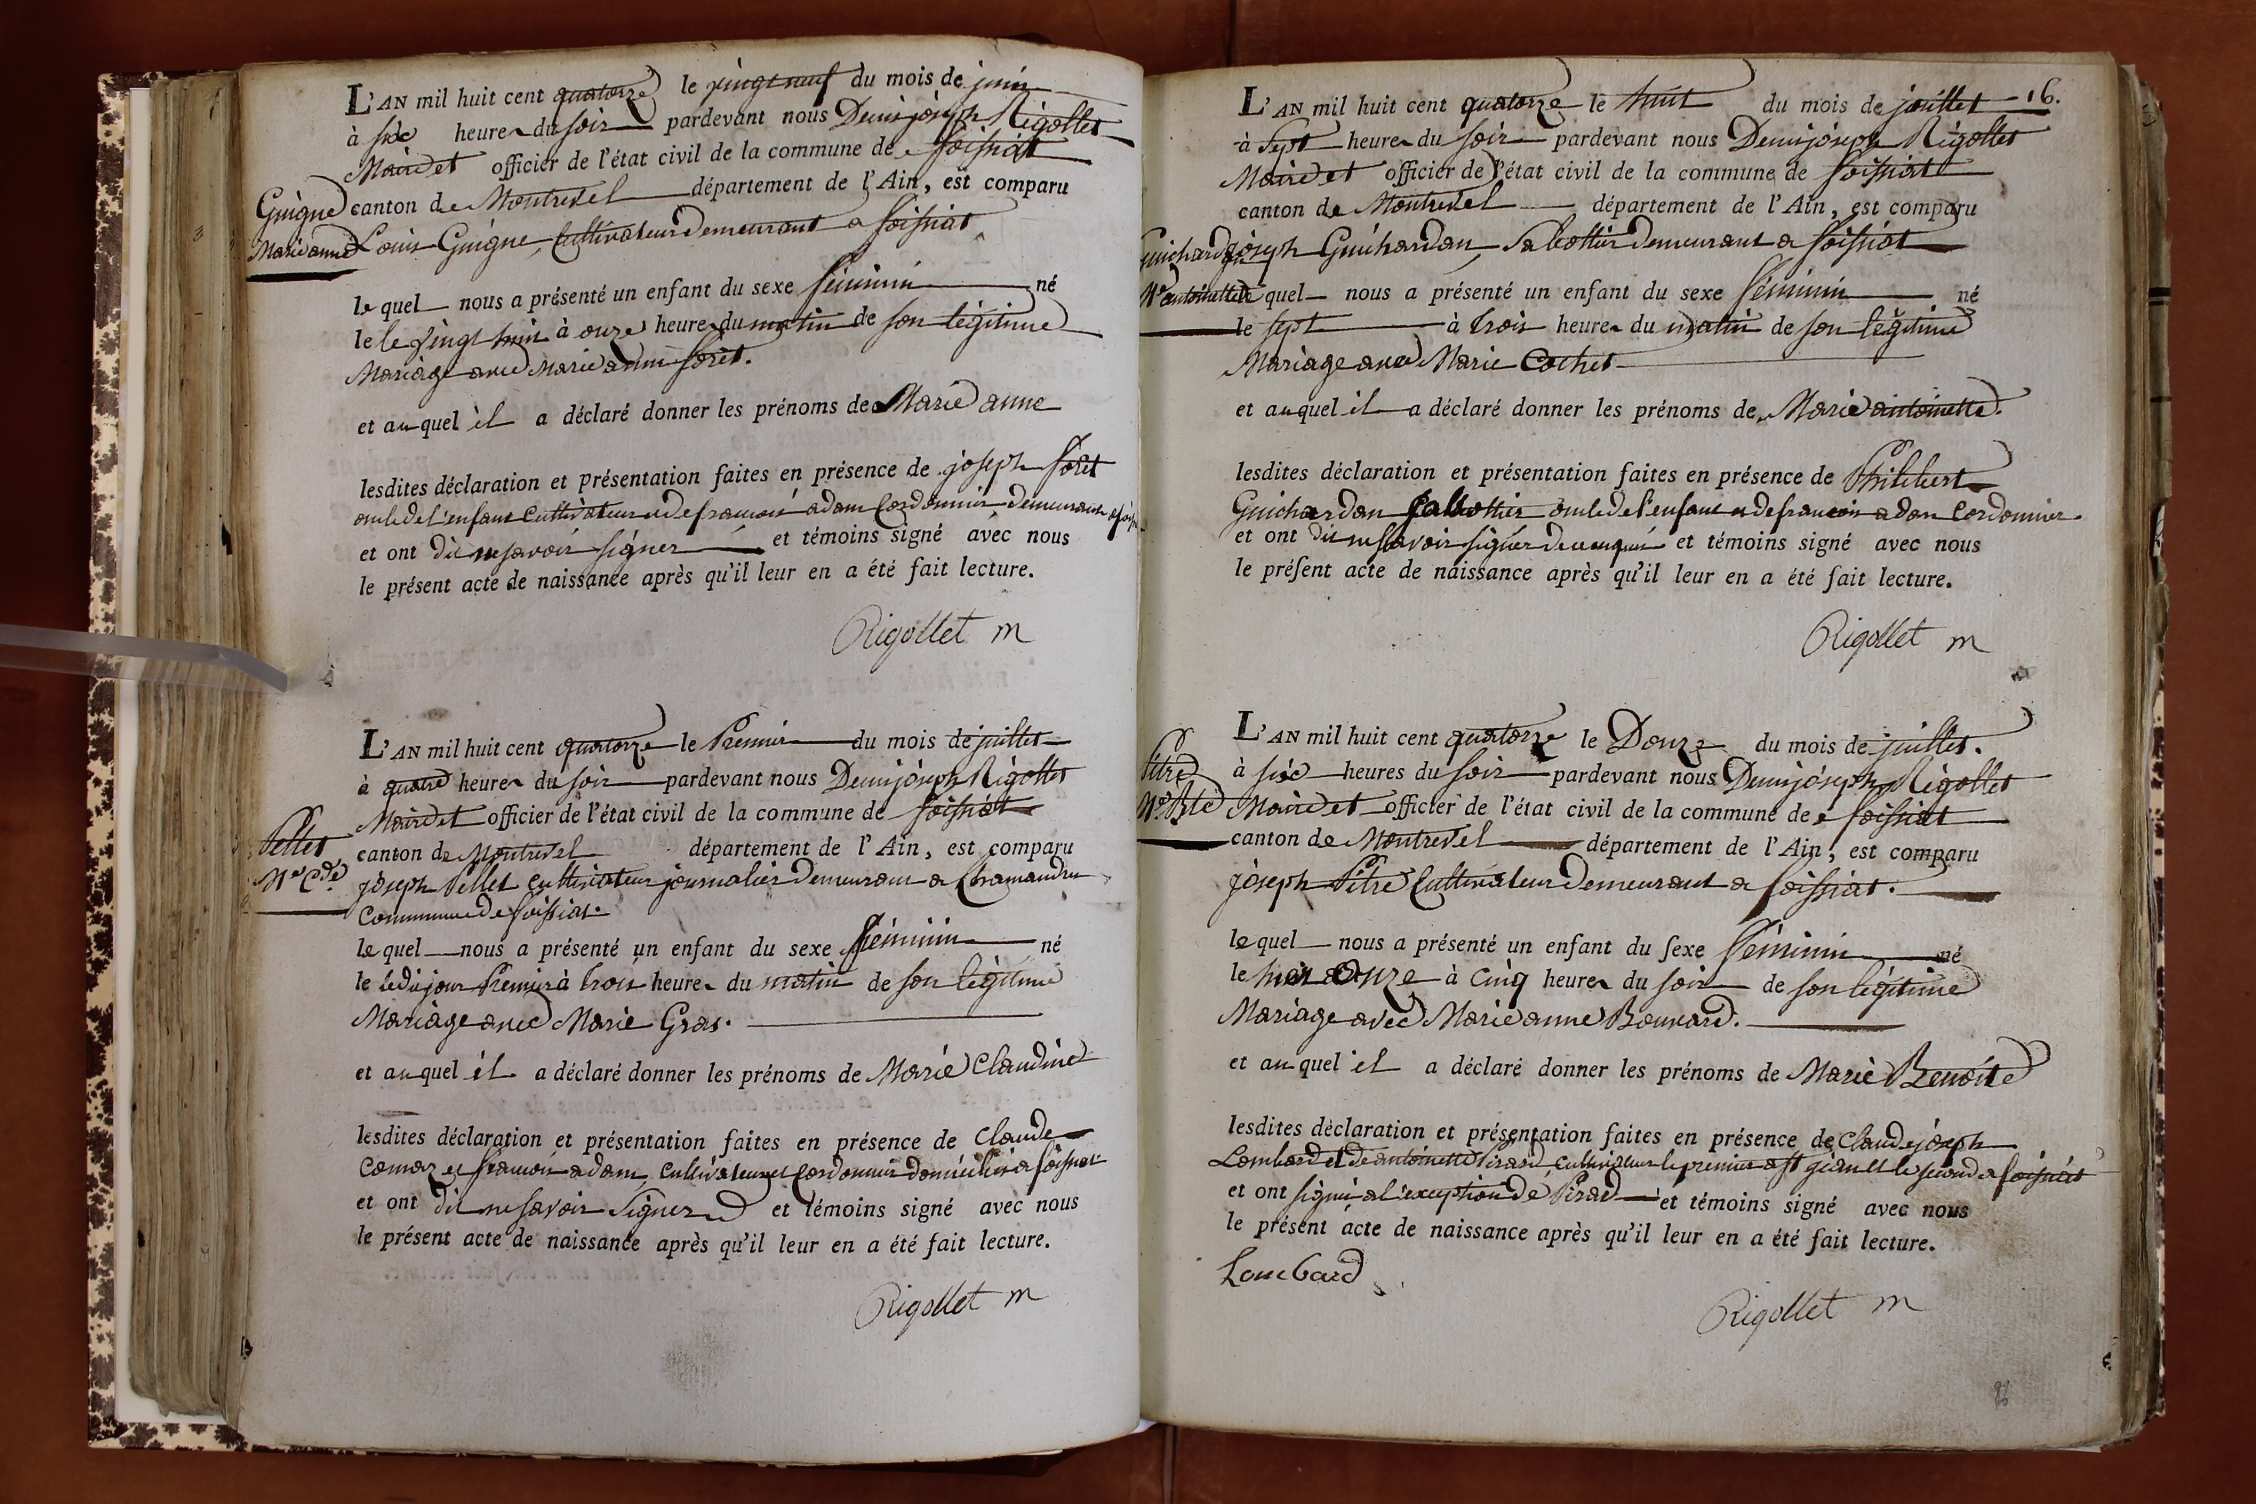 L'AN mil huit cent quatorze le vingt neuf du mois de juin
à six heures du soir pardevant nous Denis joseph Rigollet
Maire et officier de l'état civil de la commune de foissiat
canton de Montrevel département de l'Ain, est comparu
Guigne
Marie anne
Louis Guigne, Cultivateur demeurant a foissiat
le quel nous a présenté un enfant du sexe féminin né
le le vingt huit à onze heures du matin de son légitime
Mariage avec Marie anne foret.
et au quel il a déclaré donner les prénoms de Marie anne
lesdites déclaration et présentation faites en présence de joseph foret
oncle de l'enfant Cultivateur et de francois adam Cordonnier, demeurants a foissiat
et ont dit ne savoir signer et témoins signé avec nous
le présent acte de naissance après qu'il leur en a été fait lecture.
Rigollet m
L'AN mil huit cent quatorze le Premier du mois de juillet
à quatre heures du soir pardevant nous Denis joseph Rigollet
Maire et officier de l'état civil de la commune de foissiat
Pellet
Mie Cde
canton de Montrevel département de l'Ain, est comparu
joseph Pellet Cultivateur journalier demeurant a Chamandre
Commune de foissiat.
le quel nous a présenté un enfant du sexe féminin né
le dujour Premier à trois heures du matin de son légitime
Mariage avec Marie Gras.
et au quel il a déclaré donner les prénoms de Marie Claudine
lesdites déclaration et présentation faites en présence de Claude
et francois adam, Cultivateur et Cordonnier domiciliés a foissiat
et ont dit ne savoir Signer et témoins signé avec nous
le présent acte de naissance après qu'il leur en a été fait lecture.
Rigollet m
16.
L'AN mil huit cent quatorze le huit du mois de juillet
à sept heures du soir pardevant nous Denis joseph Rigollet
Maire et officier de l'état civil de la commune de foissiat
canton de Montrevel département de l'Ain, est comparu
Guichardan
Mie antoinette
joseph Guichardan, Sabottier demeurant a foissiat
le quel nous a présenté un enfant du sexe féminin né
le sept à trois heures du matin de son légitime
Mariage avec Marie Cochet
et au quel il a déclaré donner les prénoms de Marie antoinette.
lesdites déclaration et présentation faites en présence de Philibert
Guichardan Sabottier oncle de l'enfant et de francois adam Cordonnier
et ont dit ne savoir signer de ce enquis et témoins signé avec nous
le présent acte de naissance après qu'il leur en a été fait lecture.
Rigollet m
L'AN mil huit cent quatorze le Douze du mois de juillet.
Pitre
Mie Bte
à six heures du soir pardevant nous Denis joseph Rigollet
Maire et officier de l'état civil de la commune de foissiat
canton de Montrevel département de l'Ain, est comparu
joseph Pitre Cultivateur demeurant a foissiat.
le quel nous a présenté un enfant du sexe féminin né
le hier Onze à cinq heures du soir de son légitime
Mariage avec Marie anne Bouvard.
et au quel il a déclaré donner les prénoms de Marie Benoite
lesdites déclaration et présentation faites en présence de Claude joseph
Lombard et de antoinette Pirad cultivateur le premier a st et le second a foissiat
et ont signé a l'exception de Pirad et témoins signé avec nous
le présent acte de naissance après qu'il leur en a été fait lecture.
Lombard
Rigollet m